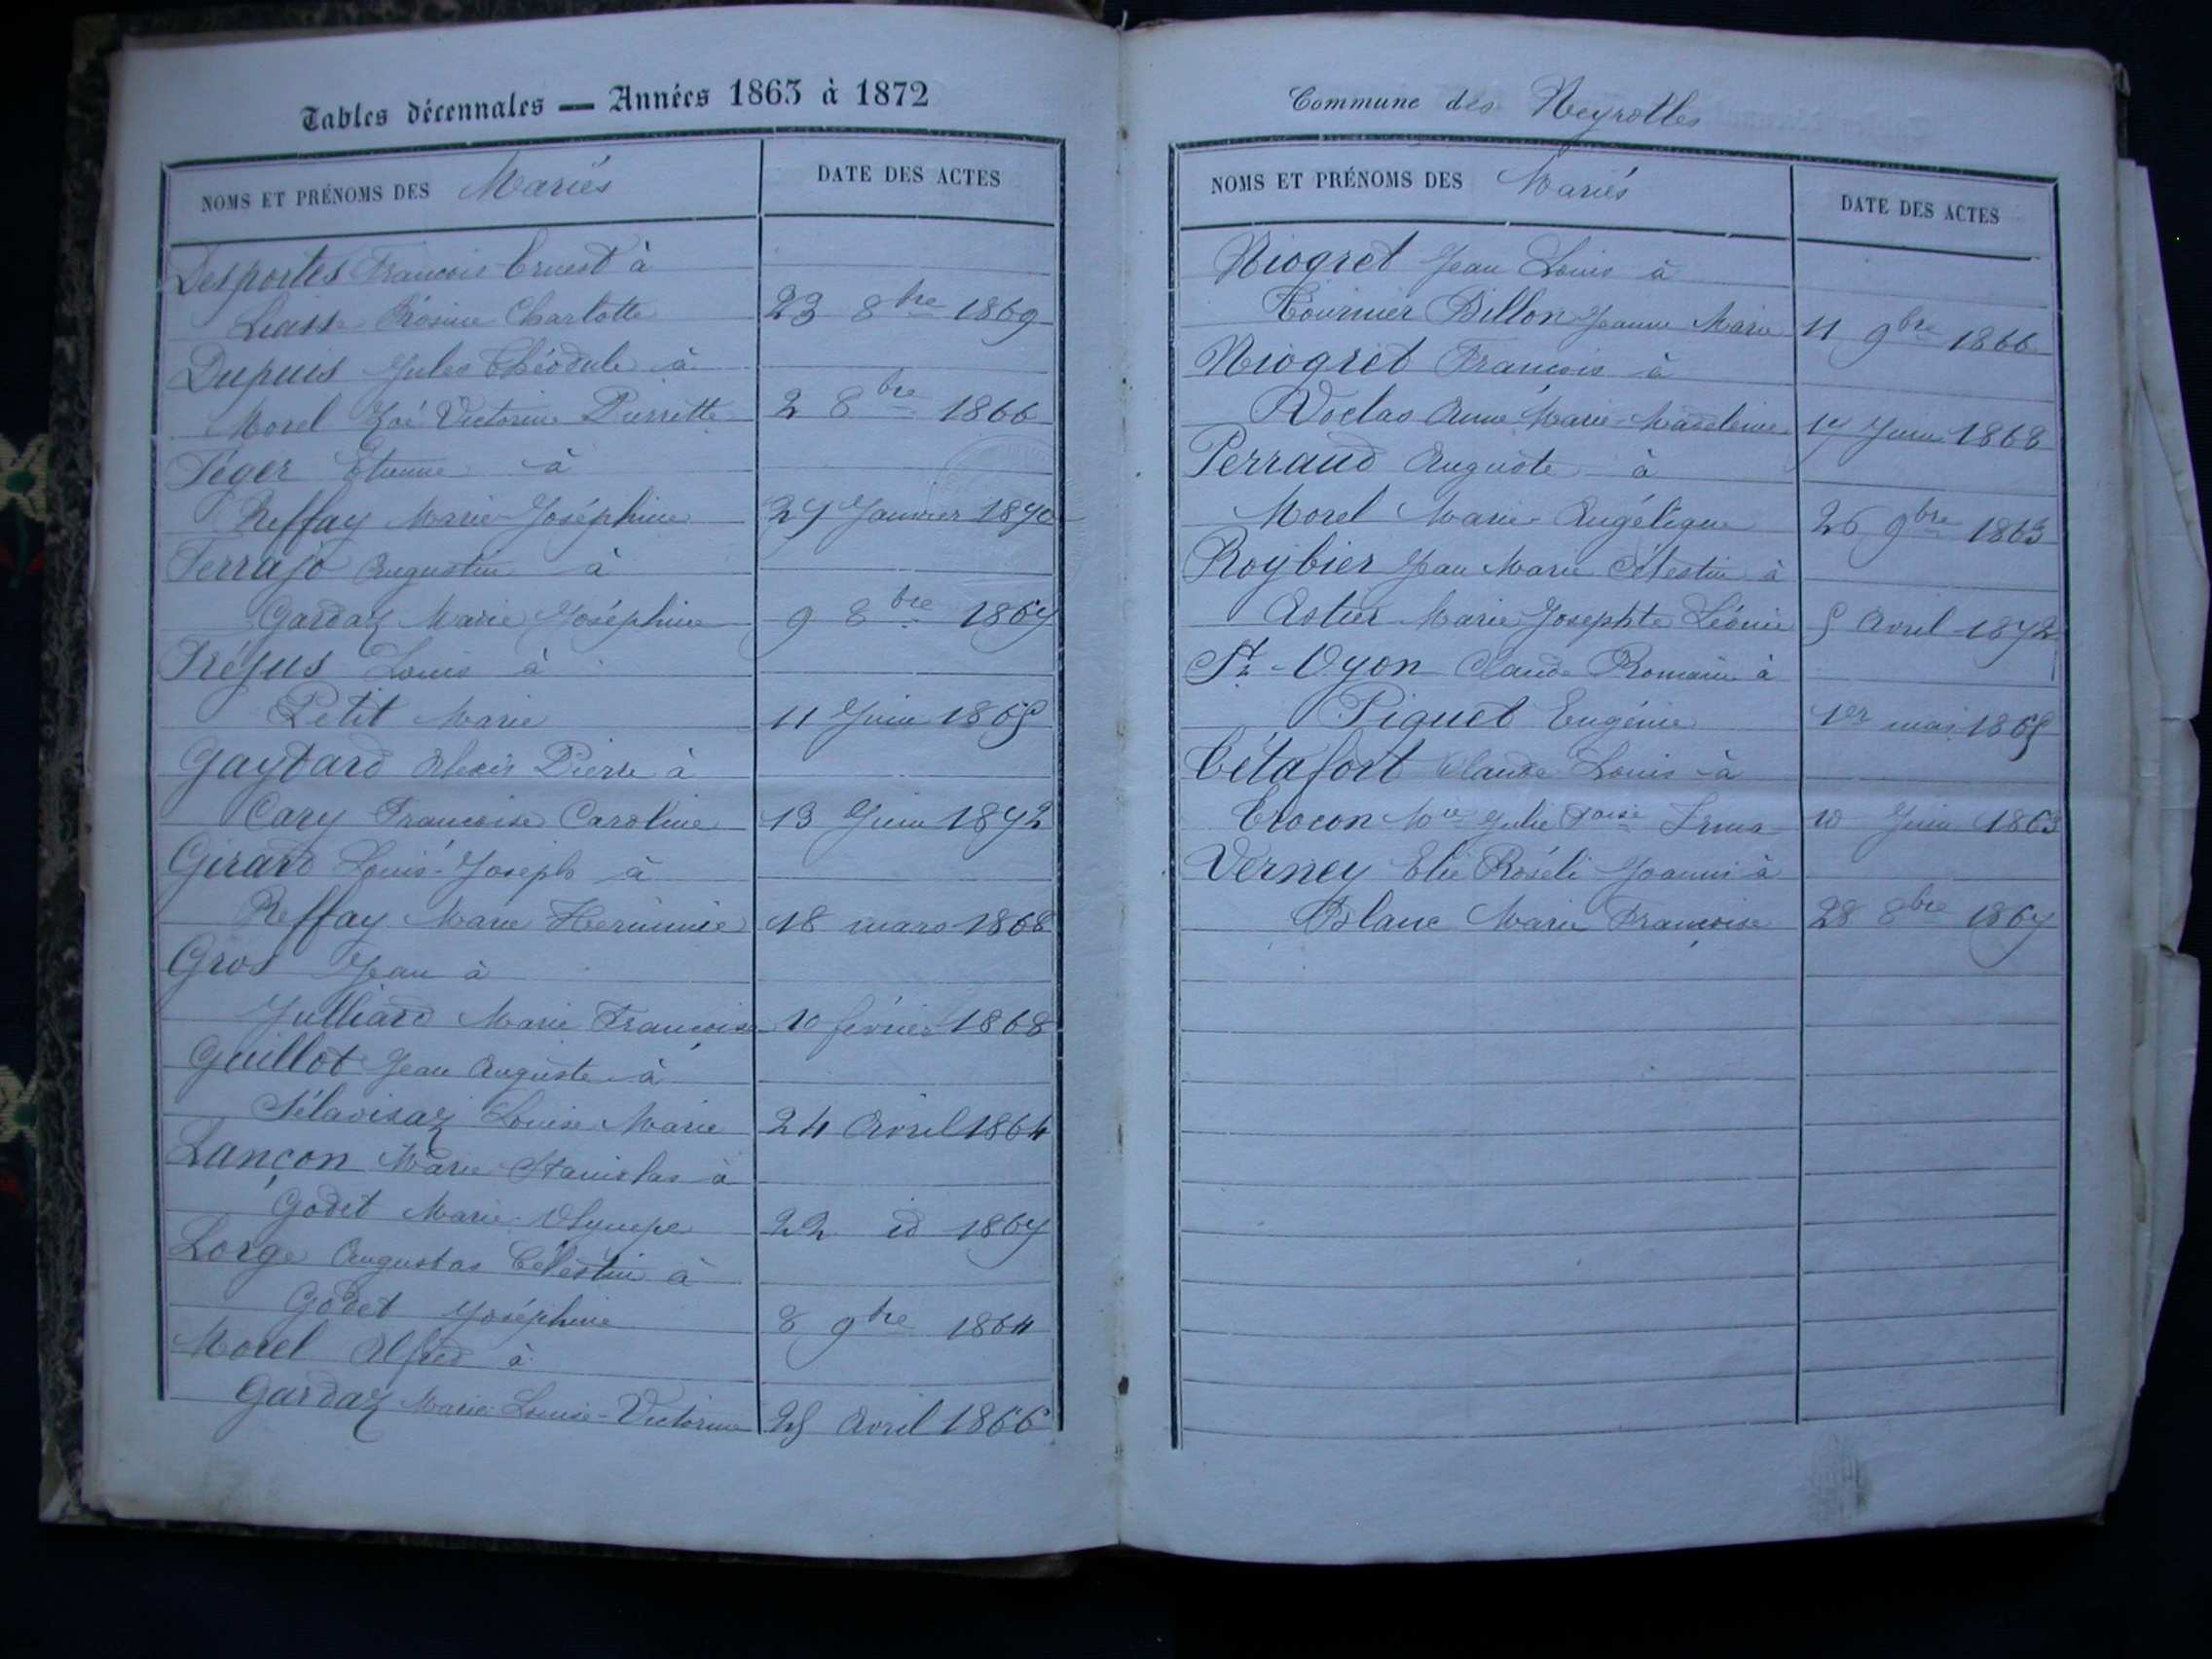 Tables décennales — Années 1863 à 1872
NOMS ET PRÉNOMS DES Mariés DATE DES ACTES
Desportes François Ernest à
Liasse Rosine Charlotte 23 8bre 1869
Dupuis Jules Théodule à
Morel Zoé Victorine Pierrette 2 8bre 1866
Féger Etienne à
Reffay Marie Joséphine 27 Janvier 1870
Ferrajo Augustin à
Gardaz Marie Joséphine 9 8bre 1867
Fréjus Louis à
Petit Marie 11 Juin 1865
Gaydard Alexis Pierre à
Cary Francoise Caroline 13 Juin 1872
Girard Louis-Joseph à
Reffay Marie Herminie 18 mars 1868
Gros Jean à
Julliard Marie Françoise 10 février 1868
Guillot Jean Auguste à
Sélavisaz Louise Marie 24 Avril 1864
Lançon Marie Stanislas à
Godet Marie Olympe 22 id 1867
Lorge Augustas Célestin à
Godet Joséphine 8 9bre 1864
Morel Alfred à
Gardaz Marie Louise-Victorine 25 Avril 1866
Commune des Neyrolles
NOMS ET PRÉNOMS DES Mariés DATE DES ACTES
Niogret Jean Louis à
Tournier Billon Jeanne Marie 11 9bre 1866
Niogret François à
Voclas Anne Marie Madeleine 17 Juin 1868
Perraud Auguste à
Morel Marie Angélique 26 9bre 1863
Roybier Jean Marie Célestin à
Astier Marie Josephte Léonie 5 Avril 1872
St-Oyon Claude Romain à
Piquet Eugénie 1er mai 1865
Tétafort Claude Louis à
Crocon Mie Julie Foise Irma 10 Juin 1863
Verney Elie Roséli Joanni à
Blanc Marie Françoise 28 8bre 1867